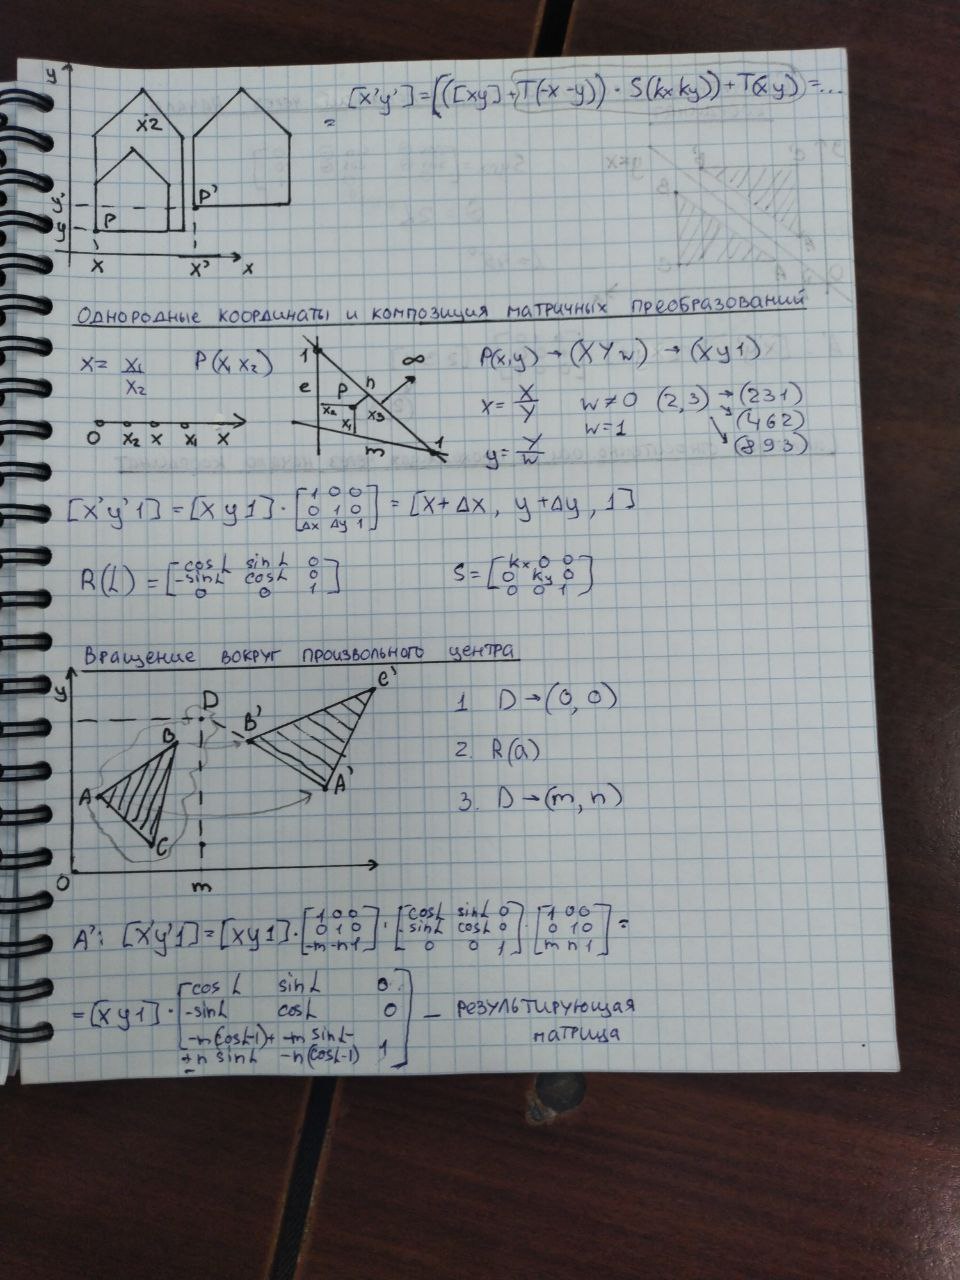 y
[x'y'] = [(([xy] + T(-x -y)) · S(kx ky)) + T(x y) = ...
=
x2
P P'
y'
y
x x' x
Однородные координаты и композиция матричных преобразований
x = x1/x2 P(x1 x2)
0 x2 x x1 x
1 ∞
e P n
x2 x1 x3
m 1
P(x,y) → (X Y w) → (x y 1)
x = X/Y w≠0 (2,3) → (2 3 1)
w=1 (4 6 2)
y = Y/w (8 9 3)
[x'y'1] = [x y 1] · [1 0 0; 0 1 0; Δx Δy 1] = [x+Δx, y+Δy, 1]
R(L) = [cosL sinL 0; -sinL cosL 0; 0 0 1] S = [kx 0 0; 0 ky 0; 0 0 1]
Вращение вокруг произвольного центра
y D B' C'
B A'
A C
0 m
1 D → (0, 0)
2. R(a)
3. D → (m, n)
A': [x'y'1] = [x y 1] · [1 0 0; 0 1 0; -m -n 1] · [cosL sinL 0; -sinL cosL 0; 0 0 1] · [1 0 0; 0 1 0; m n 1] =
= [x y 1] · [cosL sinL 0; -sinL cosL 0; -m(cosL-1)+ +n sinL -m sinL- -n(cosL-1) 1] – результирующая
матрица